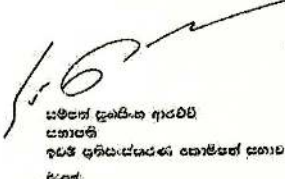 සම්පත් සුබසිංහ ආරච්චි
සභාපති
ඉඩම් ප්‍රතිසංස්කරණ කොමිෂන් සභාව